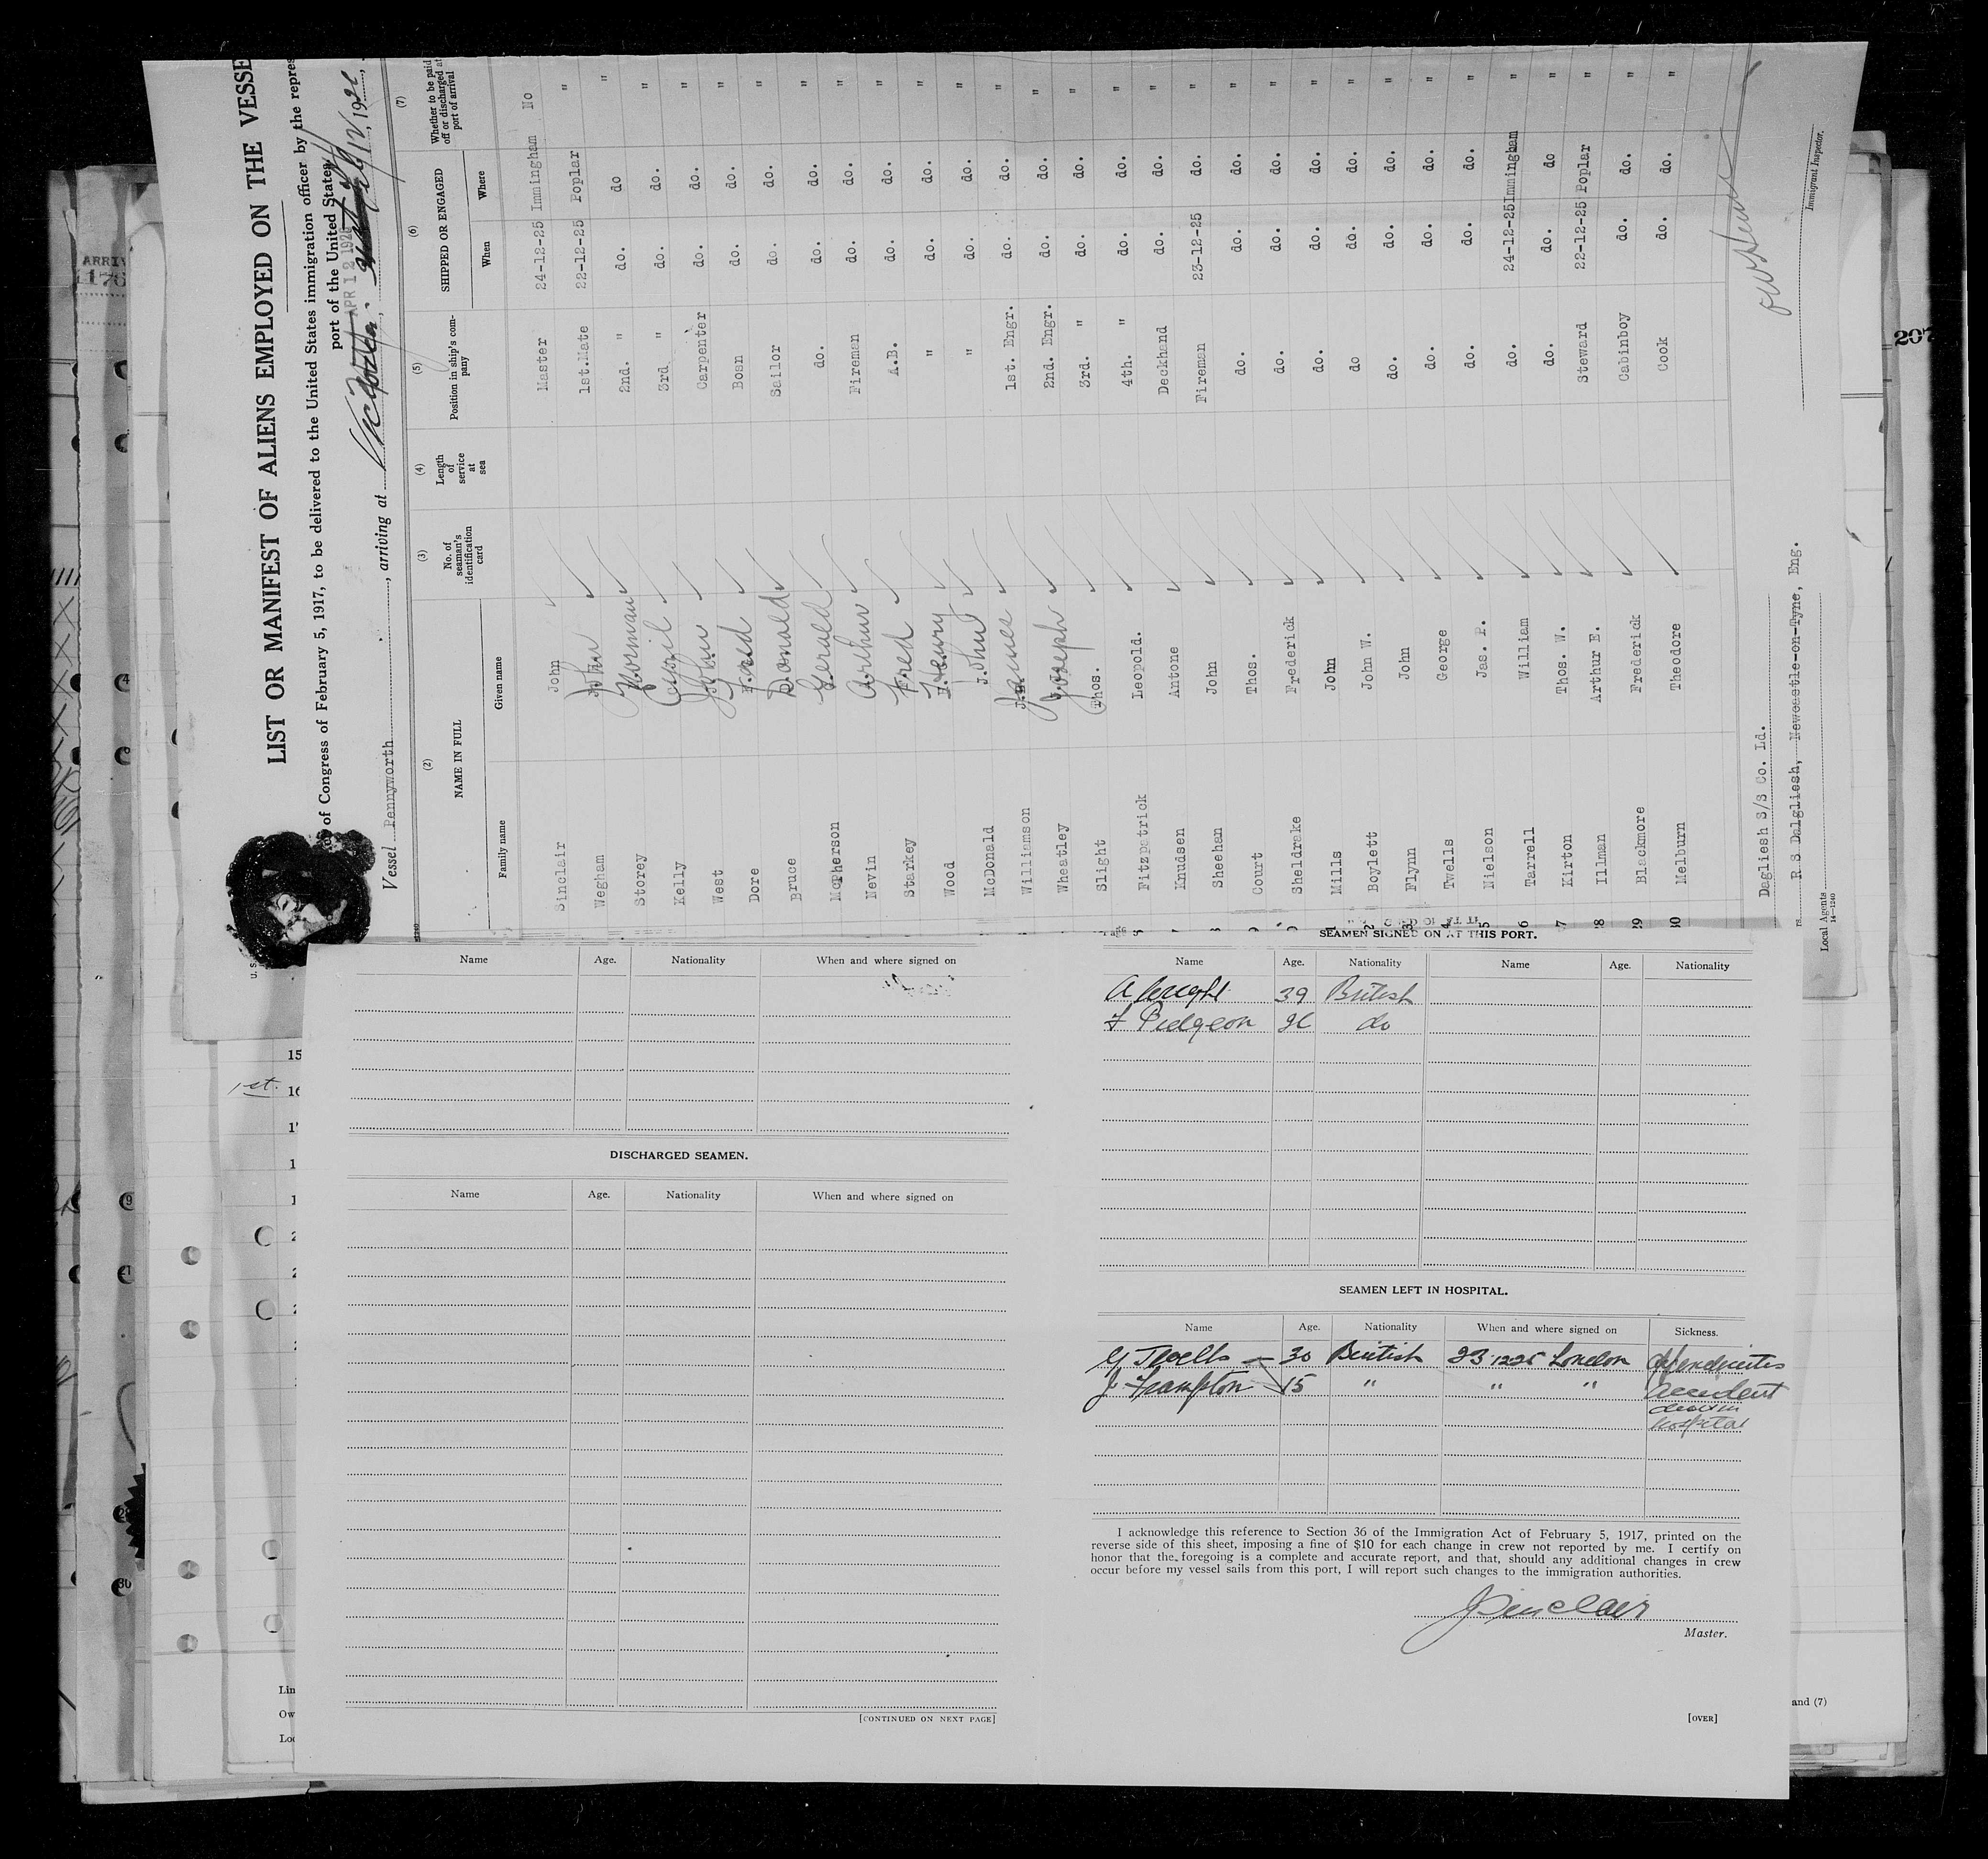 LIST OR MANIFEST OF ALIENS EMPLOYED ON THE VESSE
of Congress of February 5, 1917, to be delivered to the United States immigration officer by the repres
port of the United States
Vessel Pennyworth, arriving at Victoria APR 12 1926, 192
(2) (3) (4) (5) (6) (7)
NAME IN FULL No. of seaman's identification card Length of service at sea Position in ship's company SHIPPED OR ENGAGED Whether to be paid off or discharged at port of arrival
Family name Given name When Where
Sinclair John Master 24-12-25 Immingham No
Wegham John 1st.Mate 22-12-25 Poplar "
Storey Norman 2nd. " do. do "
Kelly Cyril 3rd. " do. do. "
West John Carpenter do. do. "
Dore Fred Bosn do. do. "
Bruce Donald Sailor do. do. "
McPherson Gerald do. do. do. "
Nevin Arthur Fireman do. do. "
Starkey Fred A.B. do. do. "
Wood Henry " do. do. "
McDonald John " do. do. "
Williamson James 1st. Engr. do. do. "
Wheatley Joseph 2nd. Engr. do. do. "
Slight Thos. 3rd. " do. do. "
Fitzpatrick Leopold. 4th. " do. do. "
Knudsen Antone Deckhand do. do. "
Sheehan John Fireman 23-12-25 do. "
Court Thos. do. do. do. "
Sheldrake Frederick do. do. do. "
Mills John do. do. do. "
Boylett John W. do do. do. "
Flynn John do. do. do. "
Twells George do. do. do. "
Nielson Jas. P. do. do. do. "
Tarrell William do. 24-12-25 Immingham "
Kirton Thos. W. do. do. do "
Illman Arthur E. Steward 22-12-25 Poplar "
Blackmore Frederick Cabinboy do. do. "
Melburn Theodore Cook do. do. "
Dagliesh S/S Co. Ld.
R S Dalgliesh, Newcastle-on-Tyne, Eng.
Local Agents
14-1240
Immigrant Inspector.
ARRIV
207
1st.
15
Name Age. Nationality When and where signed on
DISCHARGED SEAMEN.
Name Age. Nationality When and where signed on
[CONTINUED ON NEXT PAGE]
SEAMEN SIGNED ON AT THIS PORT.
Name Age. Nationality Name Age. Nationality
A Wright 39 British
F Pidgeon do
SEAMEN LEFT IN HOSPITAL.
Name Age. Nationality When and where signed on Sickness.
G Twells 30 British 23.12.25 London Appendicitis
J Frampton 15 " " " accident
died in
hospital
I acknowledge this reference to Section 36 of the Immigration Act of February 5, 1917, printed on the
reverse side of this sheet, imposing a fine of $10 for each change in crew not reported by me. I certify on
honor that the foregoing is a complete and accurate report, and that, should any additional changes in crew
occur before my vessel sails from this port, I will report such changes to the immigration authorities.
J Sinclair
Master.
[OVER]
and (7)